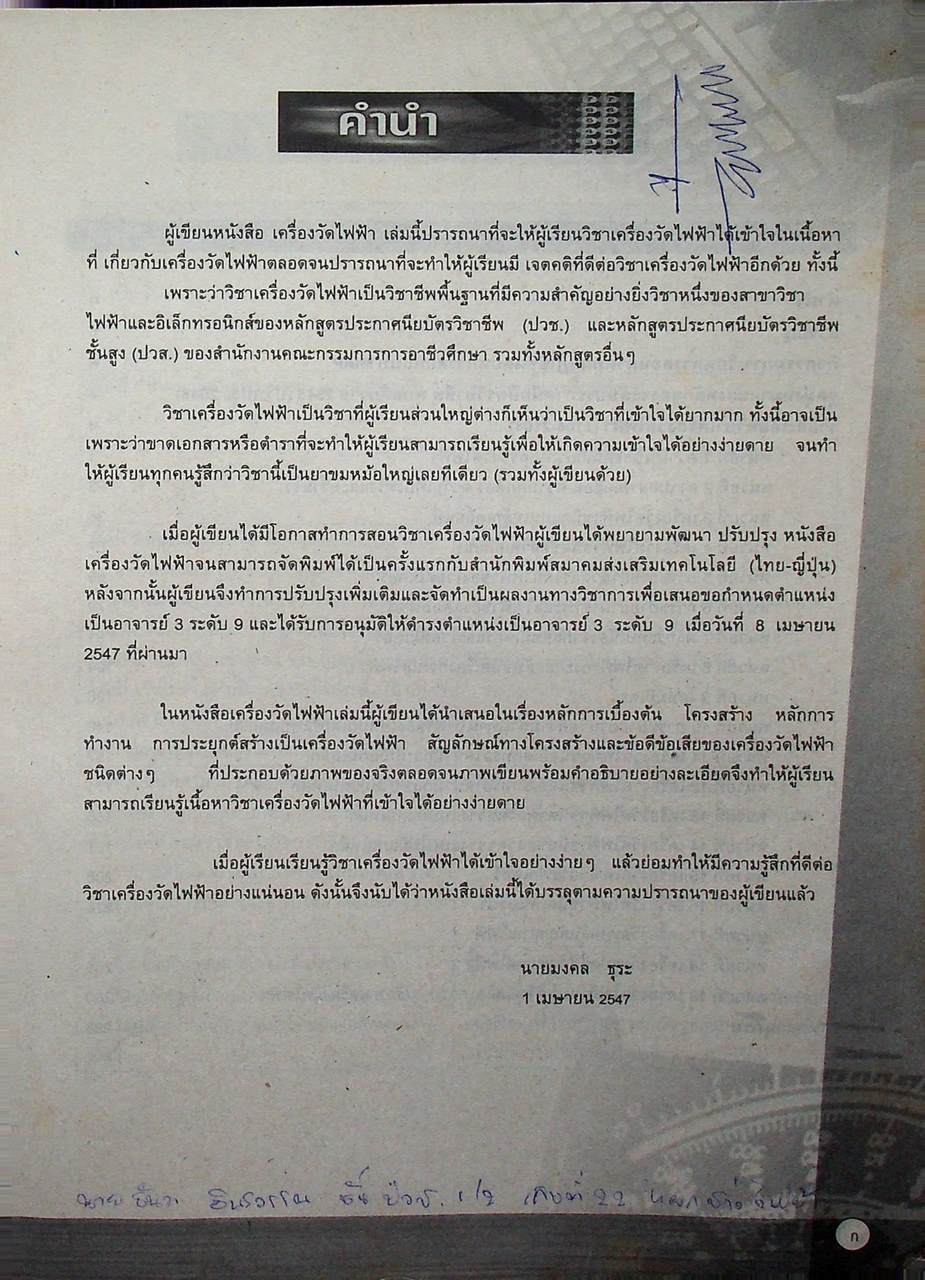 คำนำ
ผู้เขียนหนังสือ เครื่องวัดไฟฟ้า เล่มนี้ปรารถนาที่จะให้ผู้เรียนวิชาเครื่องวัดไฟฟ้าได้เข้าใจในเนื้อหา
ที่ เกี่ยวกับเครื่องวัดไฟฟ้าตลอดจนปรารถนาที่จะทำให้ผู้เรียนมี เจตคติที่ดีต่อวิชาเครื่องวัดไฟฟ้าอีกด้วย ทั้งนี้
เพราะว่าวิชาเครื่องวัดไฟฟ้าเป็นวิชาชีพพื้นฐานที่มีความสำคัญอย่างยิ่งวิชาหนึ่งของสาขาวิชา
ไฟฟ้าและอิเล็กทรอนิกส์ของหลักสูตรประกาศนียบัตรวิชาชีพ (ปวช.) และหลักสูตรประกาศนียบัตรวิชาชีพ
ชั้นสูง (ปวส.) ของสำนักงานคณะกรรมการการอาชีวศึกษา รวมทั้งหลักสูตรอื่นๆ
วิชาเครื่องวัดไฟฟ้าเป็นวิชาที่ผู้เรียนส่วนใหญ่ต่างก็เห็นว่าเป็นวิชาที่เข้าใจได้ยากมาก ทั้งนี้อาจเป็น
เพราะว่าขาดเอกสารหรือตำราที่จะทำให้ผู้เรียนสามารถเรียนรู้เพื่อให้เกิดความเข้าใจได้อย่างง่ายดาย จนทำ
ให้ผู้เรียนทุกคนรู้สึกว่าวิชานี้เป็นยาขมหม้อใหญ่เลยทีเดียว (รวมทั้งผู้เขียนด้วย)
เมื่อผู้เขียนได้มีโอกาสทำการสอนวิชาเครื่องวัดไฟฟ้าผู้เขียนได้พยายามพัฒนา ปรับปรุง หนังสือ
เครื่องวัดไฟฟ้าจนสามารถจัดพิมพ์ได้เป็นครั้งแรกกับสำนักพิมพ์สมาคมส่งเสริมเทคโนโลยี (ไทย-ญี่ปุ่น)
หลังจากนั้นผู้เขียนจึงทำการปรับปรุงเพิ่มเติมและจัดทำเป็นผลงานทางวิชาการเพื่อเสนอขอกำหนดตำแหน่ง
เป็นอาจารย์ 3 ระดับ 9 และได้รับการอนุมัติให้ดำรงตำแหน่งเป็นอาจารย์ 3 ระดับ 9 เมื่อวันที่ 8 เมษายน
2547 ที่ผ่านมา
ในหนังสือเครื่องวัดไฟฟ้าเล่มนี้ผู้เขียนได้นำเสนอในเรื่องหลักการเบื้องต้น โครงสร้าง หลักการ
ทำงาน การประยุกต์สร้างเป็นเครื่องวัดไฟฟ้า สัญลักษณ์ทางโครงสร้างและข้อดีข้อเสียของเครื่องวัดไฟฟ้า
ชนิดต่างๆ ที่ประกอบด้วยภาพของจริงตลอดจนภาพเขียนพร้อมคำอธิบายอย่างละเอียดจึงทำให้ผู้เรียน
สามารถเรียนรู้เนื้อหาวิชาเครื่องวัดไฟฟ้าที่เข้าใจได้อย่างง่ายดาย
เมื่อผู้เรียนเรียนรู้วิชาเครื่องวัดไฟฟ้าได้เข้าใจอย่างง่ายๆ แล้วย่อมทำให้มีความรู้สึกที่ดีต่อ
วิชาเครื่องวัดไฟฟ้าอย่างแน่นอน ดังนั้นจึงนับได้ว่าหนังสือเล่มนี้ได้บรรลุตามความปรารถนาของผู้เขียนแล้ว
นายมงคล ธุระ
1 เมษายน 2547
นาย ปวช. 1/2 เลขที่ 22
ก